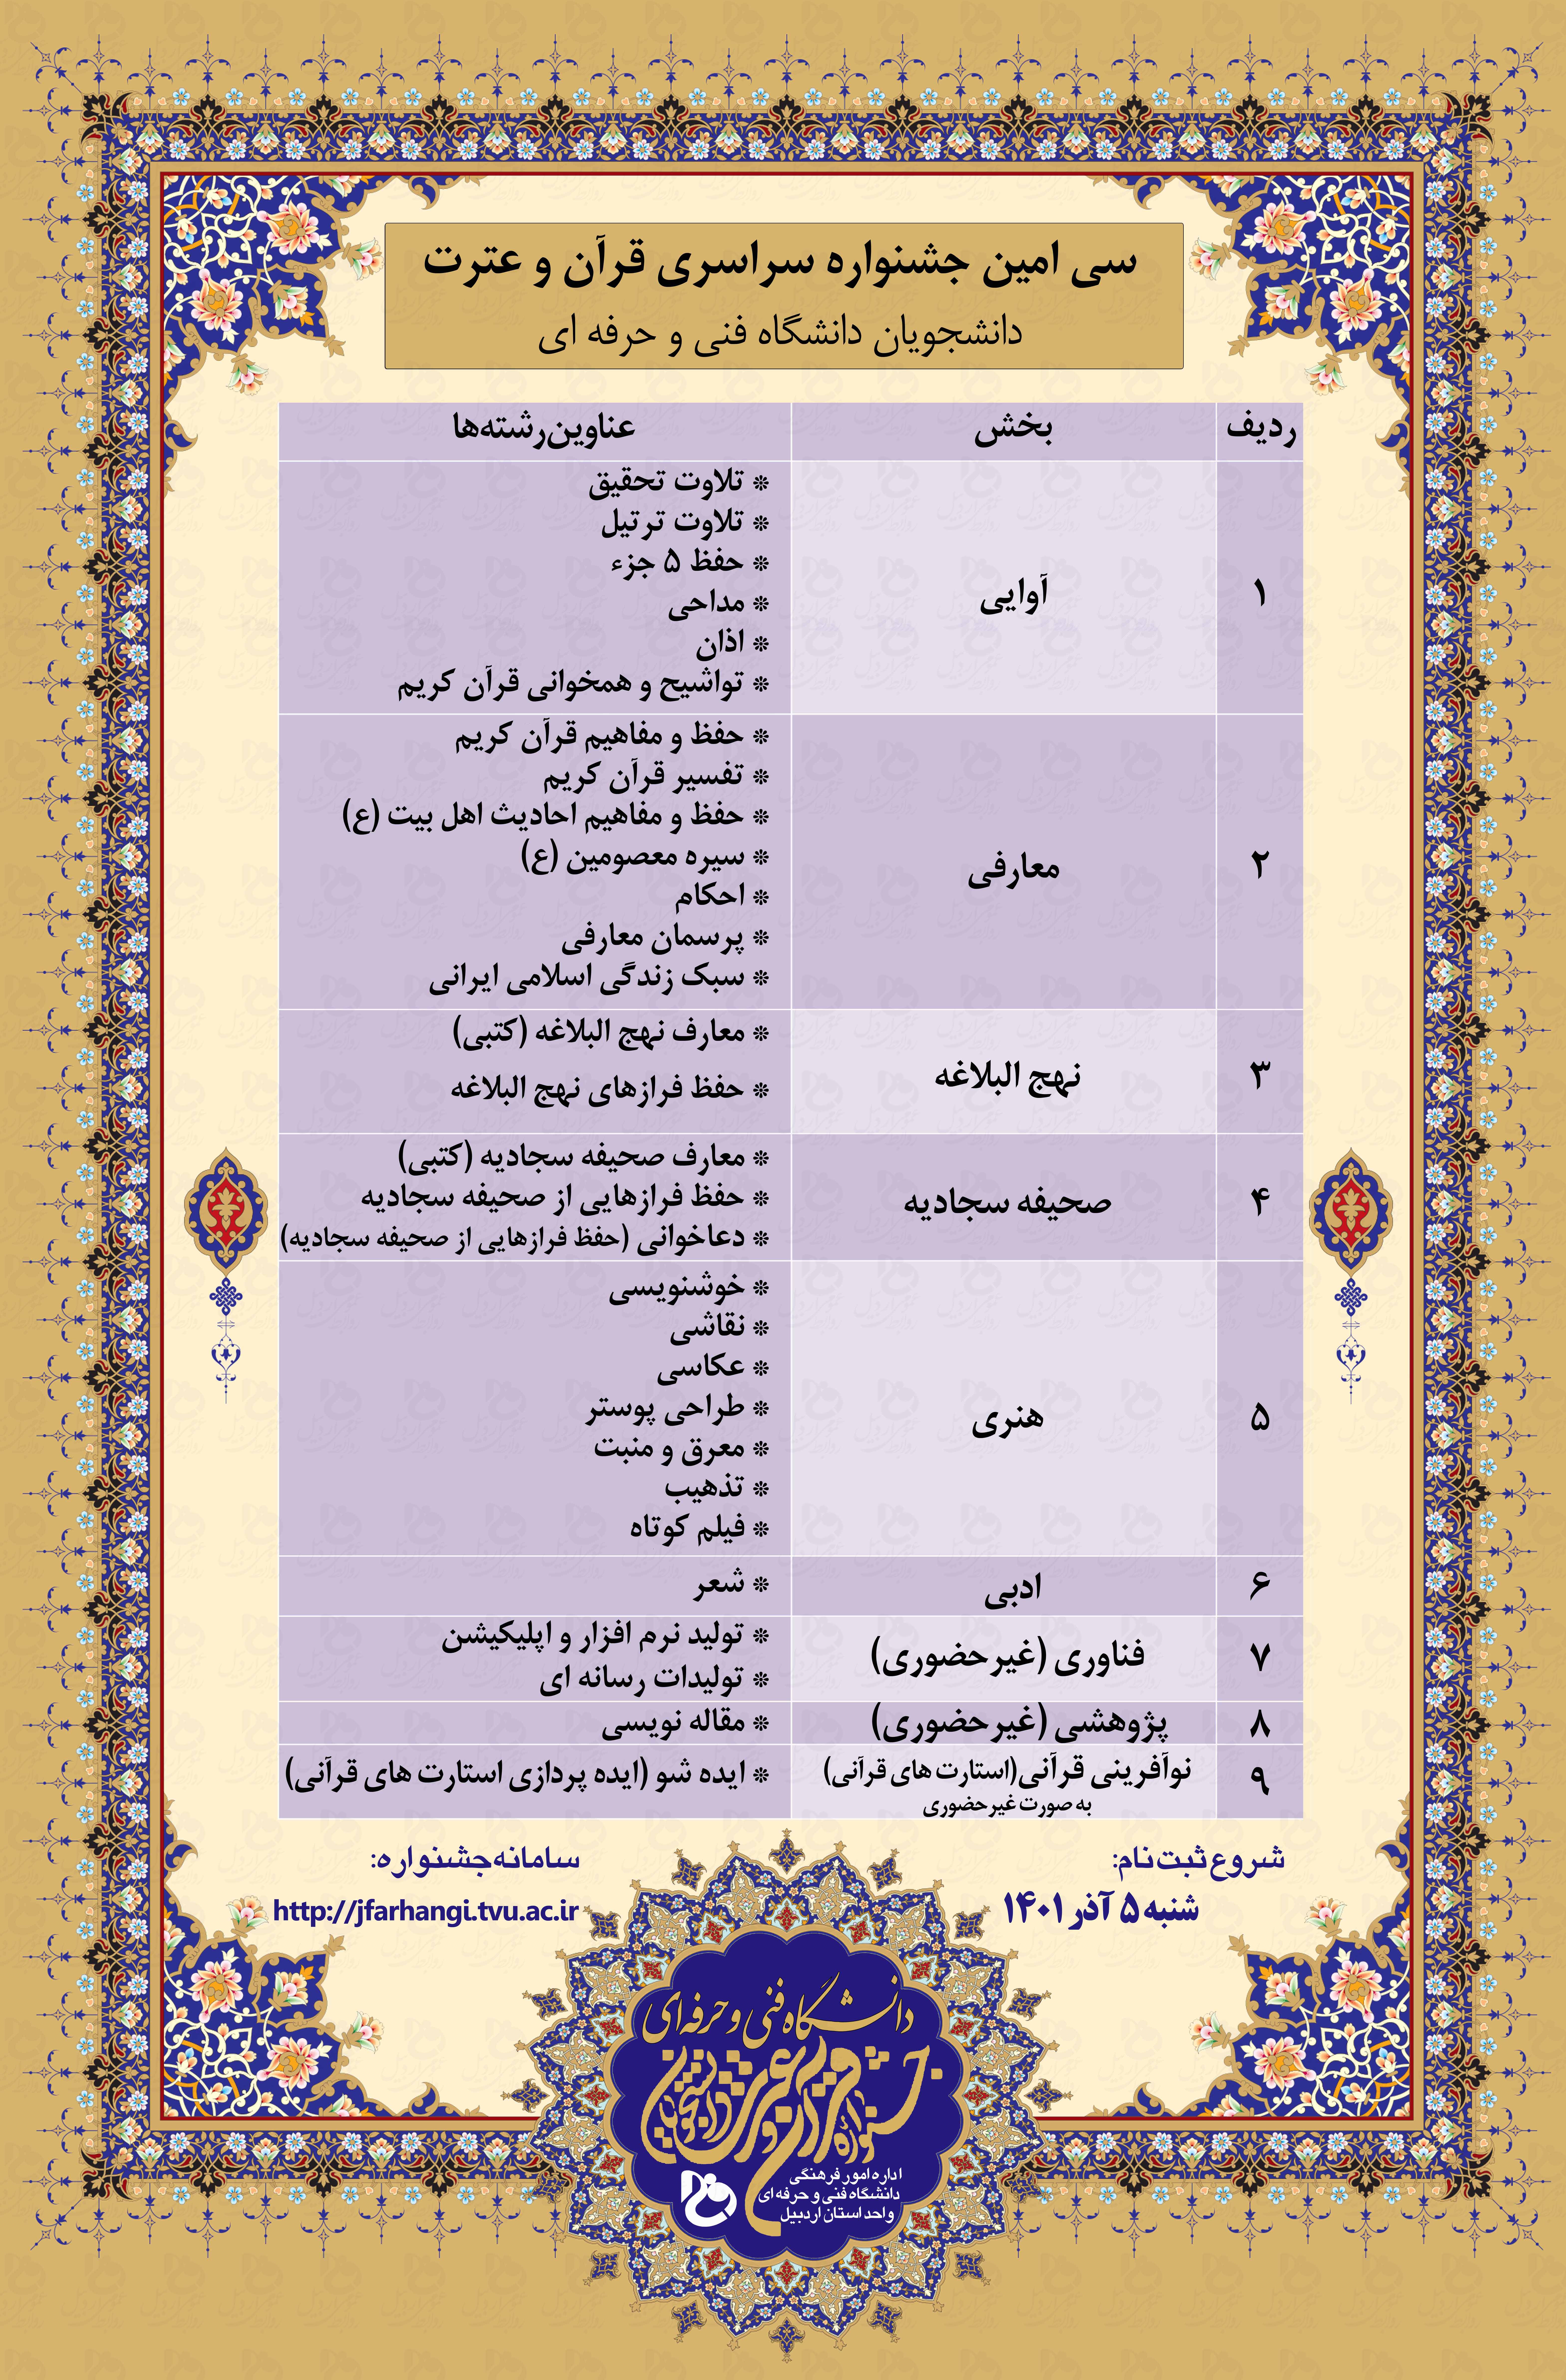 سی امین جشنواره سراسری قرآن و عترت
دانشجویان دانشگاه فنی و حرفه ای
ردیف بخش عناوین‌رشته‌ها
۱ آوایی
❊ تلاوت تحقیق
❊ تلاوت ترتیل
❊ حفظ ۵ جزء
❊ مداحی
❊ اذان
❊ تواشیح و همخوانی قرآن کریم
۲ معارفی
❊ حفظ و مفاهیم قرآن کریم
❊ تفسیر قرآن کریم
❊ حفظ و مفاهیم احادیث اهل بیت (ع)
❊ سیره معصومین (ع)
❊ احکام
❊ پرسمان معارفی
❊ سبک زندگی اسلامی ایرانی
۳ نهج البلاغه
❊ معارف نهج البلاغه (کتبی)
❊ حفظ فرازهای نهج البلاغه
۴ صحیفه سجادیه
❊ معارف صحیفه سجادیه (کتبی)
❊ حفظ فرازهایی از صحیفه سجادیه
❊ دعاخوانی (حفظ فرازهایی از صحیفه سجادیه)
۵ هنری
❊ خوشنویسی
❊ نقاشی
❊ عکاسی
❊ طراحی پوستر
❊ معرق و منبت
❊ تذهیب
❊ فیلم کوتاه
۶ ادبی
❊ شعر
۷ فناوری (غیرحضوری)
❊ تولید نرم افزار و اپلیکیشن
❊ تولیدات رسانه ای
۸ پژوهشی (غیرحضوری)
❊ مقاله نویسی
۹ نوآفرینی قرآنی(استارت های قرآنی)
به صورت غیرحضوری
❊ ایده شو (ایده پردازی استارت های قرآنی)
شروع ثبت‌نام:
شنبه ۵ آذر ۱۴۰۱
سامانه‌جشنواره:
http://jfarhangi.tvu.ac.ir
دانشگاه فنی و حرفه‌ای
جشنواره قرآن و عترت دانشجویان
اداره امور فرهنگی
دانشگاه فنی و حرفه ای
واحد استان اردبیل